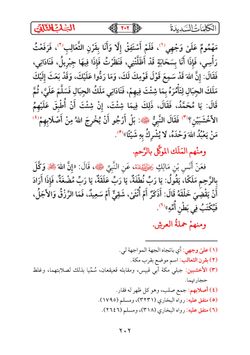 الكلمات السديدة
٢٠٢
مَهْمُومٌ عَلَىٰ وَجْهِي(١)، فَلَمْ أَسْتَفِقْ إِلَّا وَأَنَا بِقَرْنِ الثَّعَالِبِ(٢)، فَرَفَعْتُ
رَأْسِي، فَإِذَا أَنَا بِسَحَابَةٍ قَدْ أَظَلَّتْنِي، فَنَظَرْتُ فَإِذَا فِيهَا جِبْرِيلُ، فَنَادَانِي،
فَقَالَ: إِنَّ اللهَ قَدْ سَمِعَ قَوْلَ قَوْمِكَ لَكَ، وَمَا رَدُّوا عَلَيْكَ، وَقَدْ بَعَثَ إِلَيْكَ
مَلَكَ الْجِبَالِ لِتَأْمُرَهُ بِمَا شِئْتَ فِيهِمْ، فَنَادَانِي مَلَكُ الْجِبَالِ فَسَلَّمَ عَلَيَّ، ثُمَّ
قَالَ: يَا مُحَمَّدُ، فَقَالَ، ذَلِكَ فِيمَا شِئْتَ، إِنْ شِئْتَ أَنْ أُطْبِقَ عَلَيْهِمُ
الْأَخْشَبَيْنِ(٣)؟ فَقَالَ النَّبِيُّ ﷺ: بَلْ أَرْجُو أَنْ يُخْرِجَ اللهُ مِنْ أَصْلَابِهِمْ(٤)
مَنْ يَعْبُدُ اللهَ وَحْدَهُ، لَا يُشْرِكُ بِهِ شَيْئًا»(٥).
ومنهم المَلَك الموكَّل بالرَّحِم.
فعَنْ أَنَسِ بْنِ مَالِكٍ رضي الله عنه، عَنِ النَّبِيِّ ﷺ، قَالَ: «إِنَّ اللهَ ﷻ وَكَّلَ
بِالرَّحِمِ مَلَكًا، يَقُولُ: يَا رَبِّ نُطْفَةٌ، يَا رَبِّ عَلَقَةٌ، يَا رَبِّ مُضْغَةٌ، فَإِذَا أَرَادَ
أَنْ يَقْضِيَ خَلْقَهُ قَالَ: أَذَكَرٌ أَمْ أُنْثَى، شَقِيٌّ أَمْ سَعِيدٌ، فَمَا الرِّزْقُ وَالْأَجَلُ،
فَيُكْتَبُ فِي بَطْنِ أُمِّهِ»(٦).
ومنهم حملةُ العرش.
(١) على وجهي: أي باتجاه الجهة المواجهة لي.
(٢) بقرن الثعالب: اسم موضع بقرب مكة.
(٣) الأخشبين: جبلي مكة أبي قبيس، ومقابله قعيقعان، سُمّيا بذلك لصلابتهما، وغلظ
حجارتهما.
(٤) أصلابهم: جمع صلب، وهو كل ظهر له فقار.
(٥) متفق عليه: رواه البخاري (٣٢٣١)، ومسلم (١٧٩٥).
(٦) متفق عليه: رواه البخاري (٣١٨)، ومسلم (٢٦٤٦).
٢٠٢